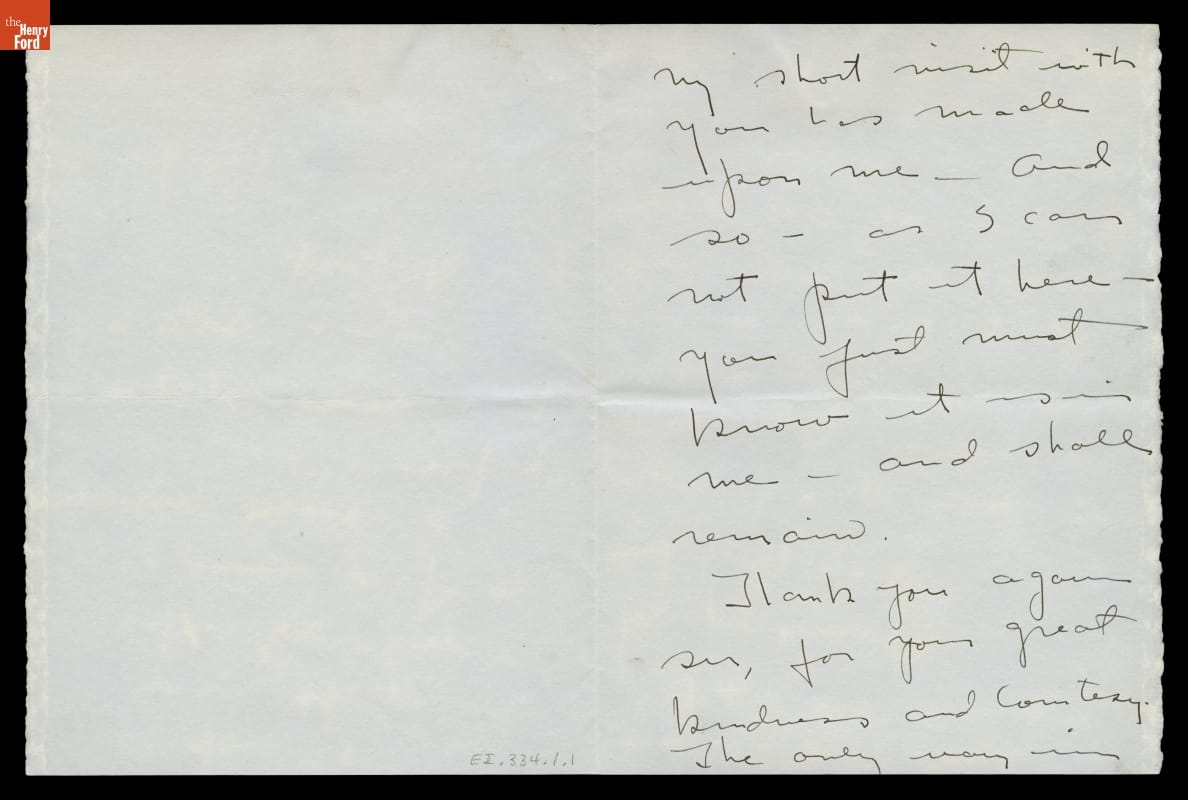 the
Henry
Ford
my short visit with
you has made
upon me — And
so – as I can
not put it here –
you just must
know it is in
me – and shall
remain.
Thank you again
sir, for your great
kindness and Courtesy.
The only way in
EI.334.1.1